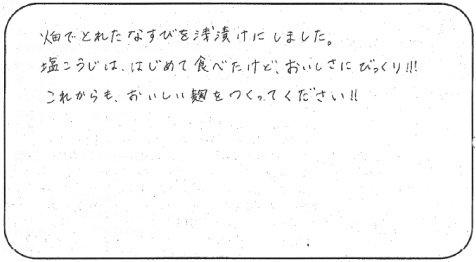 畑でとれたなすびを浅漬けにしました。
塩こうじは、はじめて食べたけど、おいしさにびっくり!!!
これからも、おいしい麹をつくってください!!